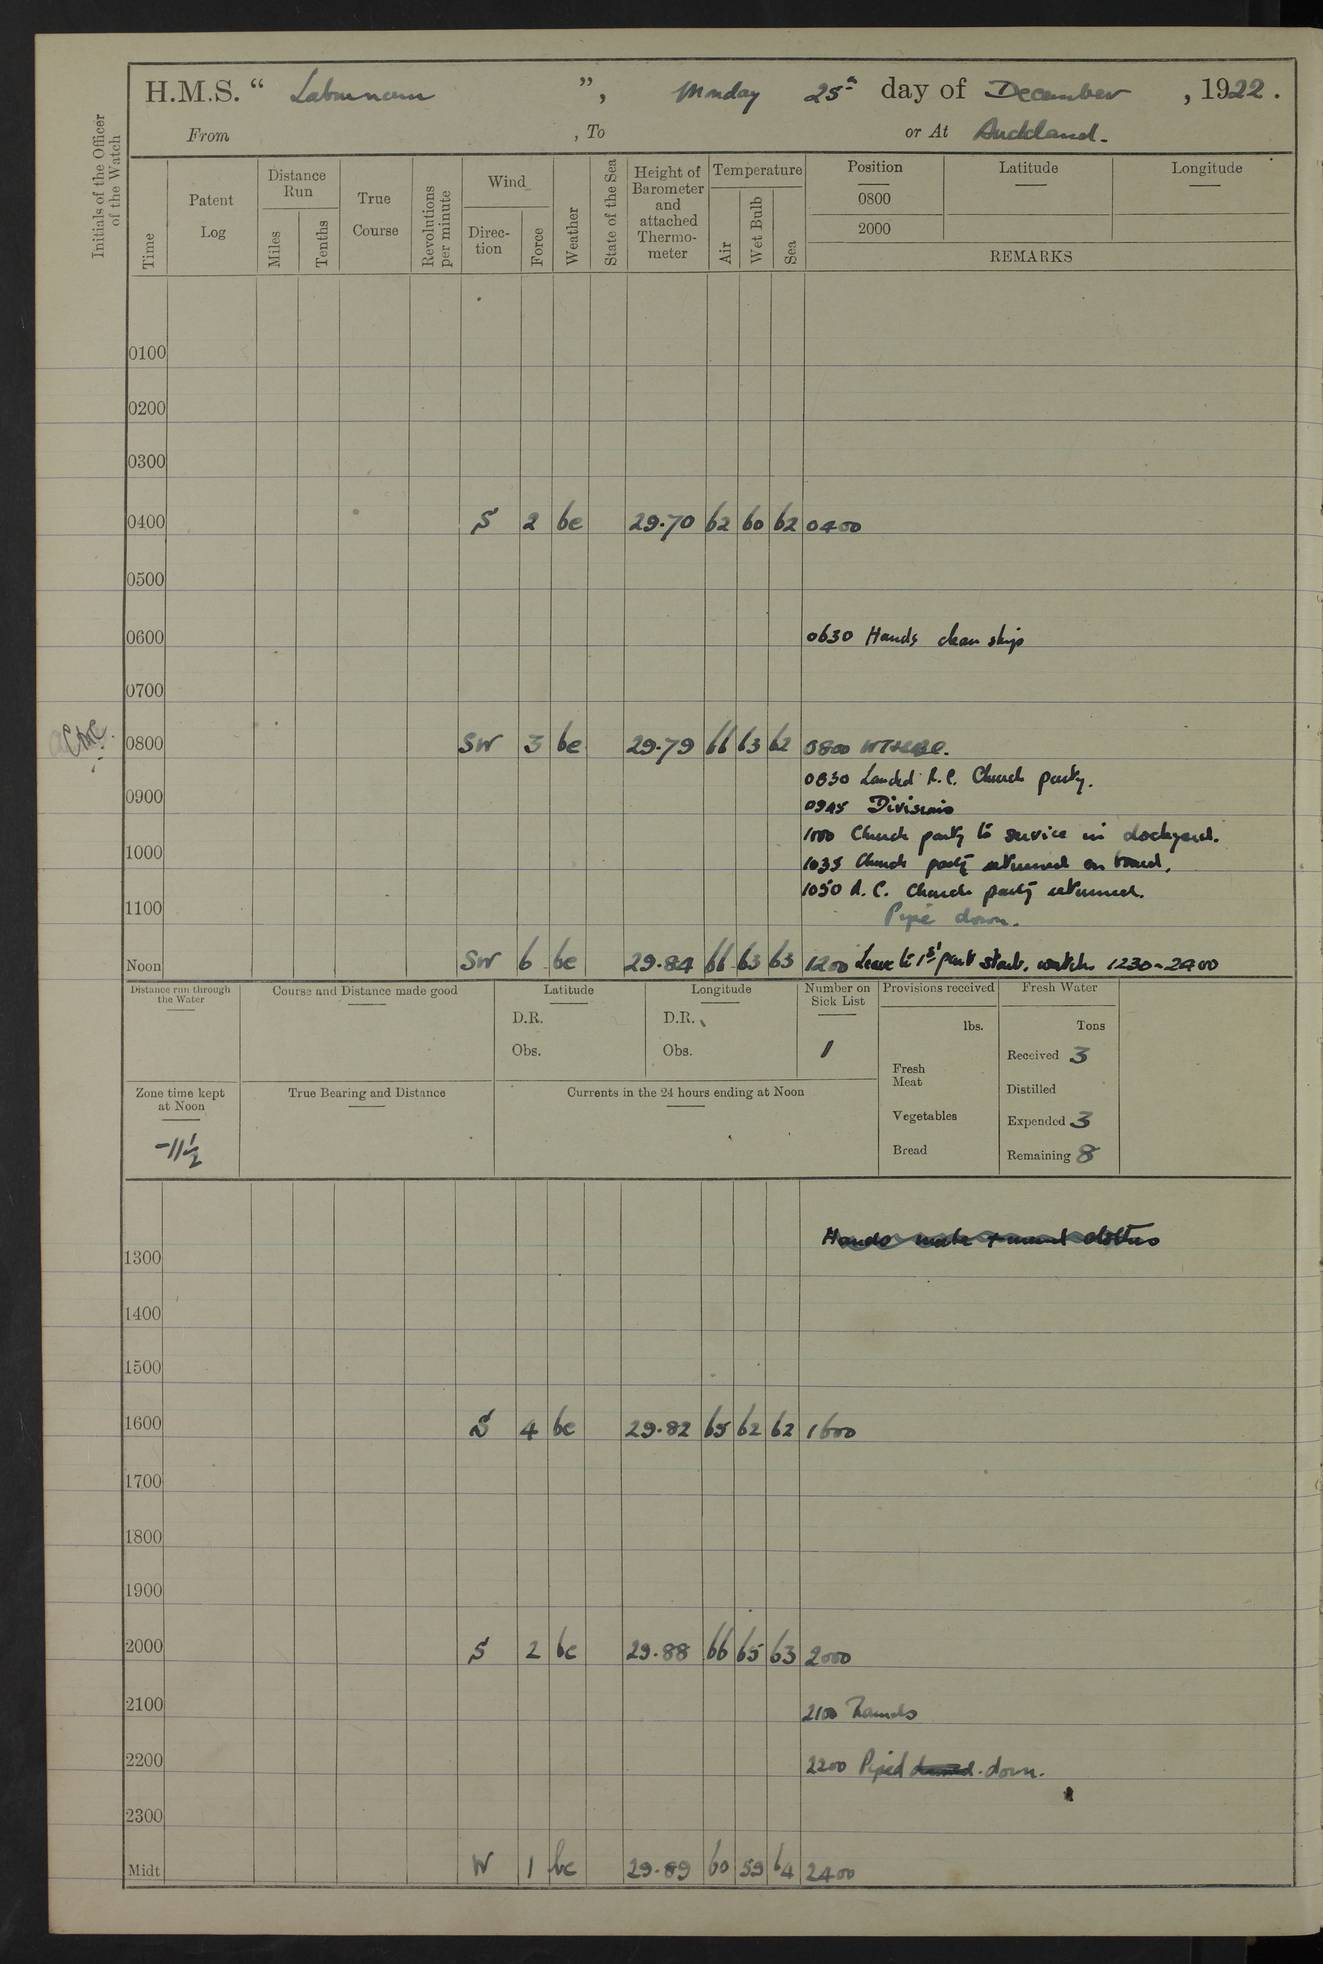 H.M.S. “ Laburnum ”, Monday 25th day of December, 1922.
From , To or At Auckland.
Initials of the Officer of the Watch
Time
Patent Log
Distance Run
Miles
Tenths
True Course
Revolutions per minute
Wind
Direc-tion
Force
Weather
State of the Sea
Height of Barometer and attached Thermo-meter
Temperature
Air
Wet Bulb
Sea
Position
Latitude
Longitude
0800
2000
REMARKS
0100
0200
0300
0400 S 2 bc 29.70 62 60 62 0400
0500
0600 0630 Hands clean ship
0700
0800 SW 3 bc 29.79 66 63 62 0800
0830 Landed R.C. Church party.
0900
0945 Divisions
1000 Church party to service in dockyard.
1000
1035 Church party returned on board.
1050 R.C. Church party returned.
1100
Pipe down.
Noon SW 6 bc 29.84 66 63 63 1200 Leave to 1st part starb. watch 1230-2400
Distance run through the Water
Course and Distance made good
Latitude
D.R.
Obs.
Longitude
D.R.
Obs.
Number on Sick List
1
Provisions received
lbs.
Fresh Meat
Vegetables
Bread
Fresh Water
Tons
Received 3
Distilled
Expended 3
Remaining 8
Zone time kept at Noon
-11½
True Bearing and Distance
Currents in the 24 hours ending at Noon
Hands make + mend clothes
1300
1400
1500
1600 S 4 bc 29.82 65 62 62 1600
1700
1800
1900
2000 S 2 bc 29.88 66 65 63 2000
2100 2100 Rounds
2200 2200 Piped down.
2300
Midt W 1 bc 29.89 60 59 64 2400